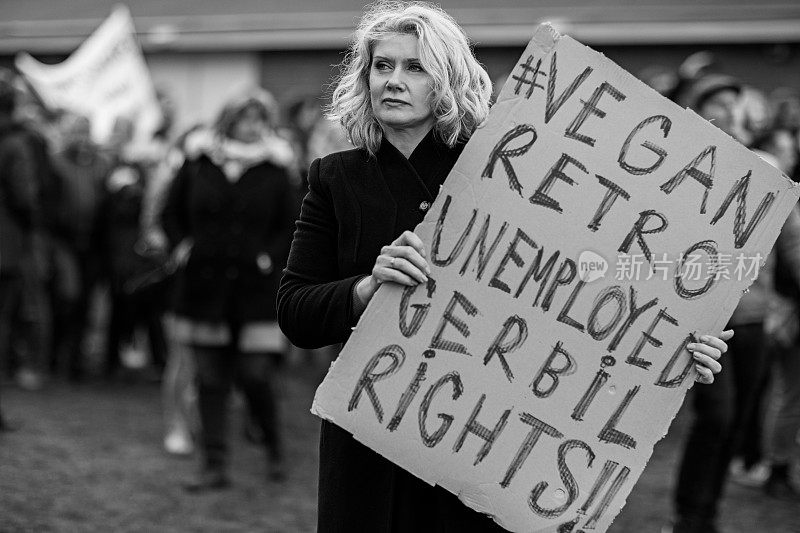 #VEGAN
RETRO
UNEMPLOYED
GERBiL
RiGHTS!!
new 新浪新闻中心